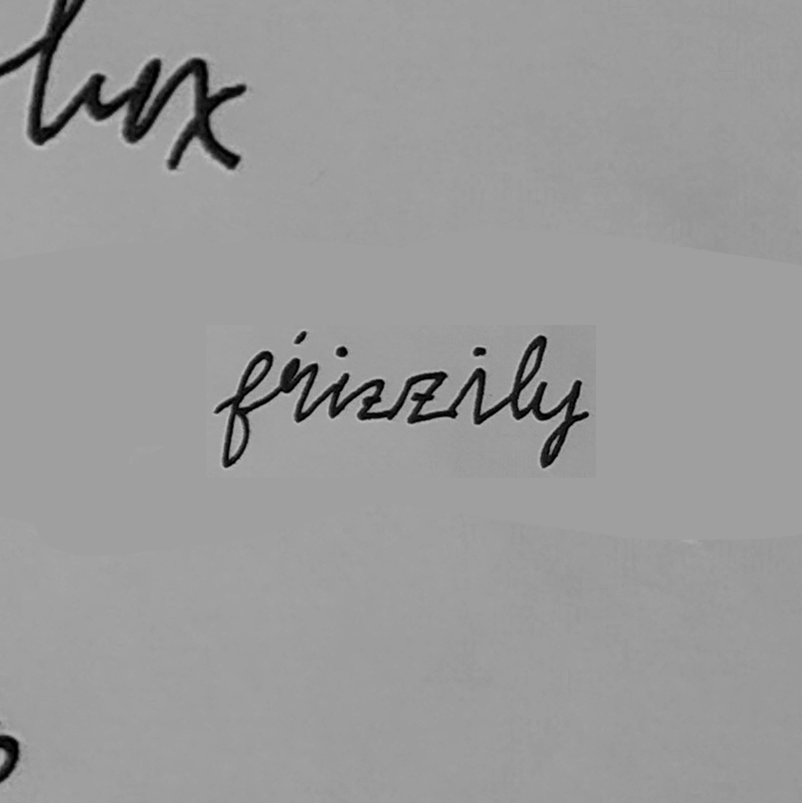 lux
frizzily